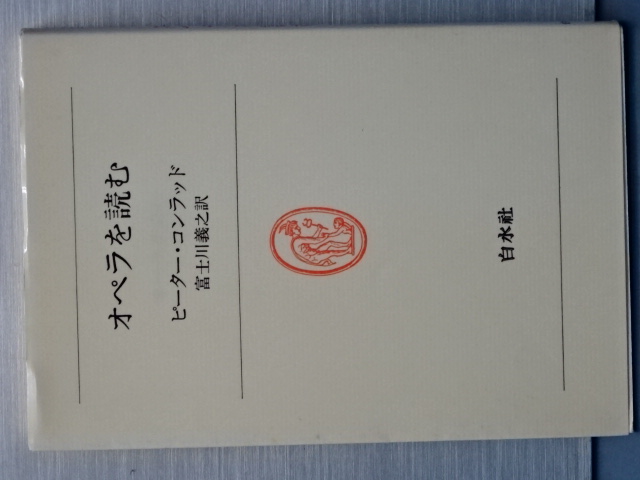 オペラを読む
ピーター・コンラッド
富士川義之訳
白水社